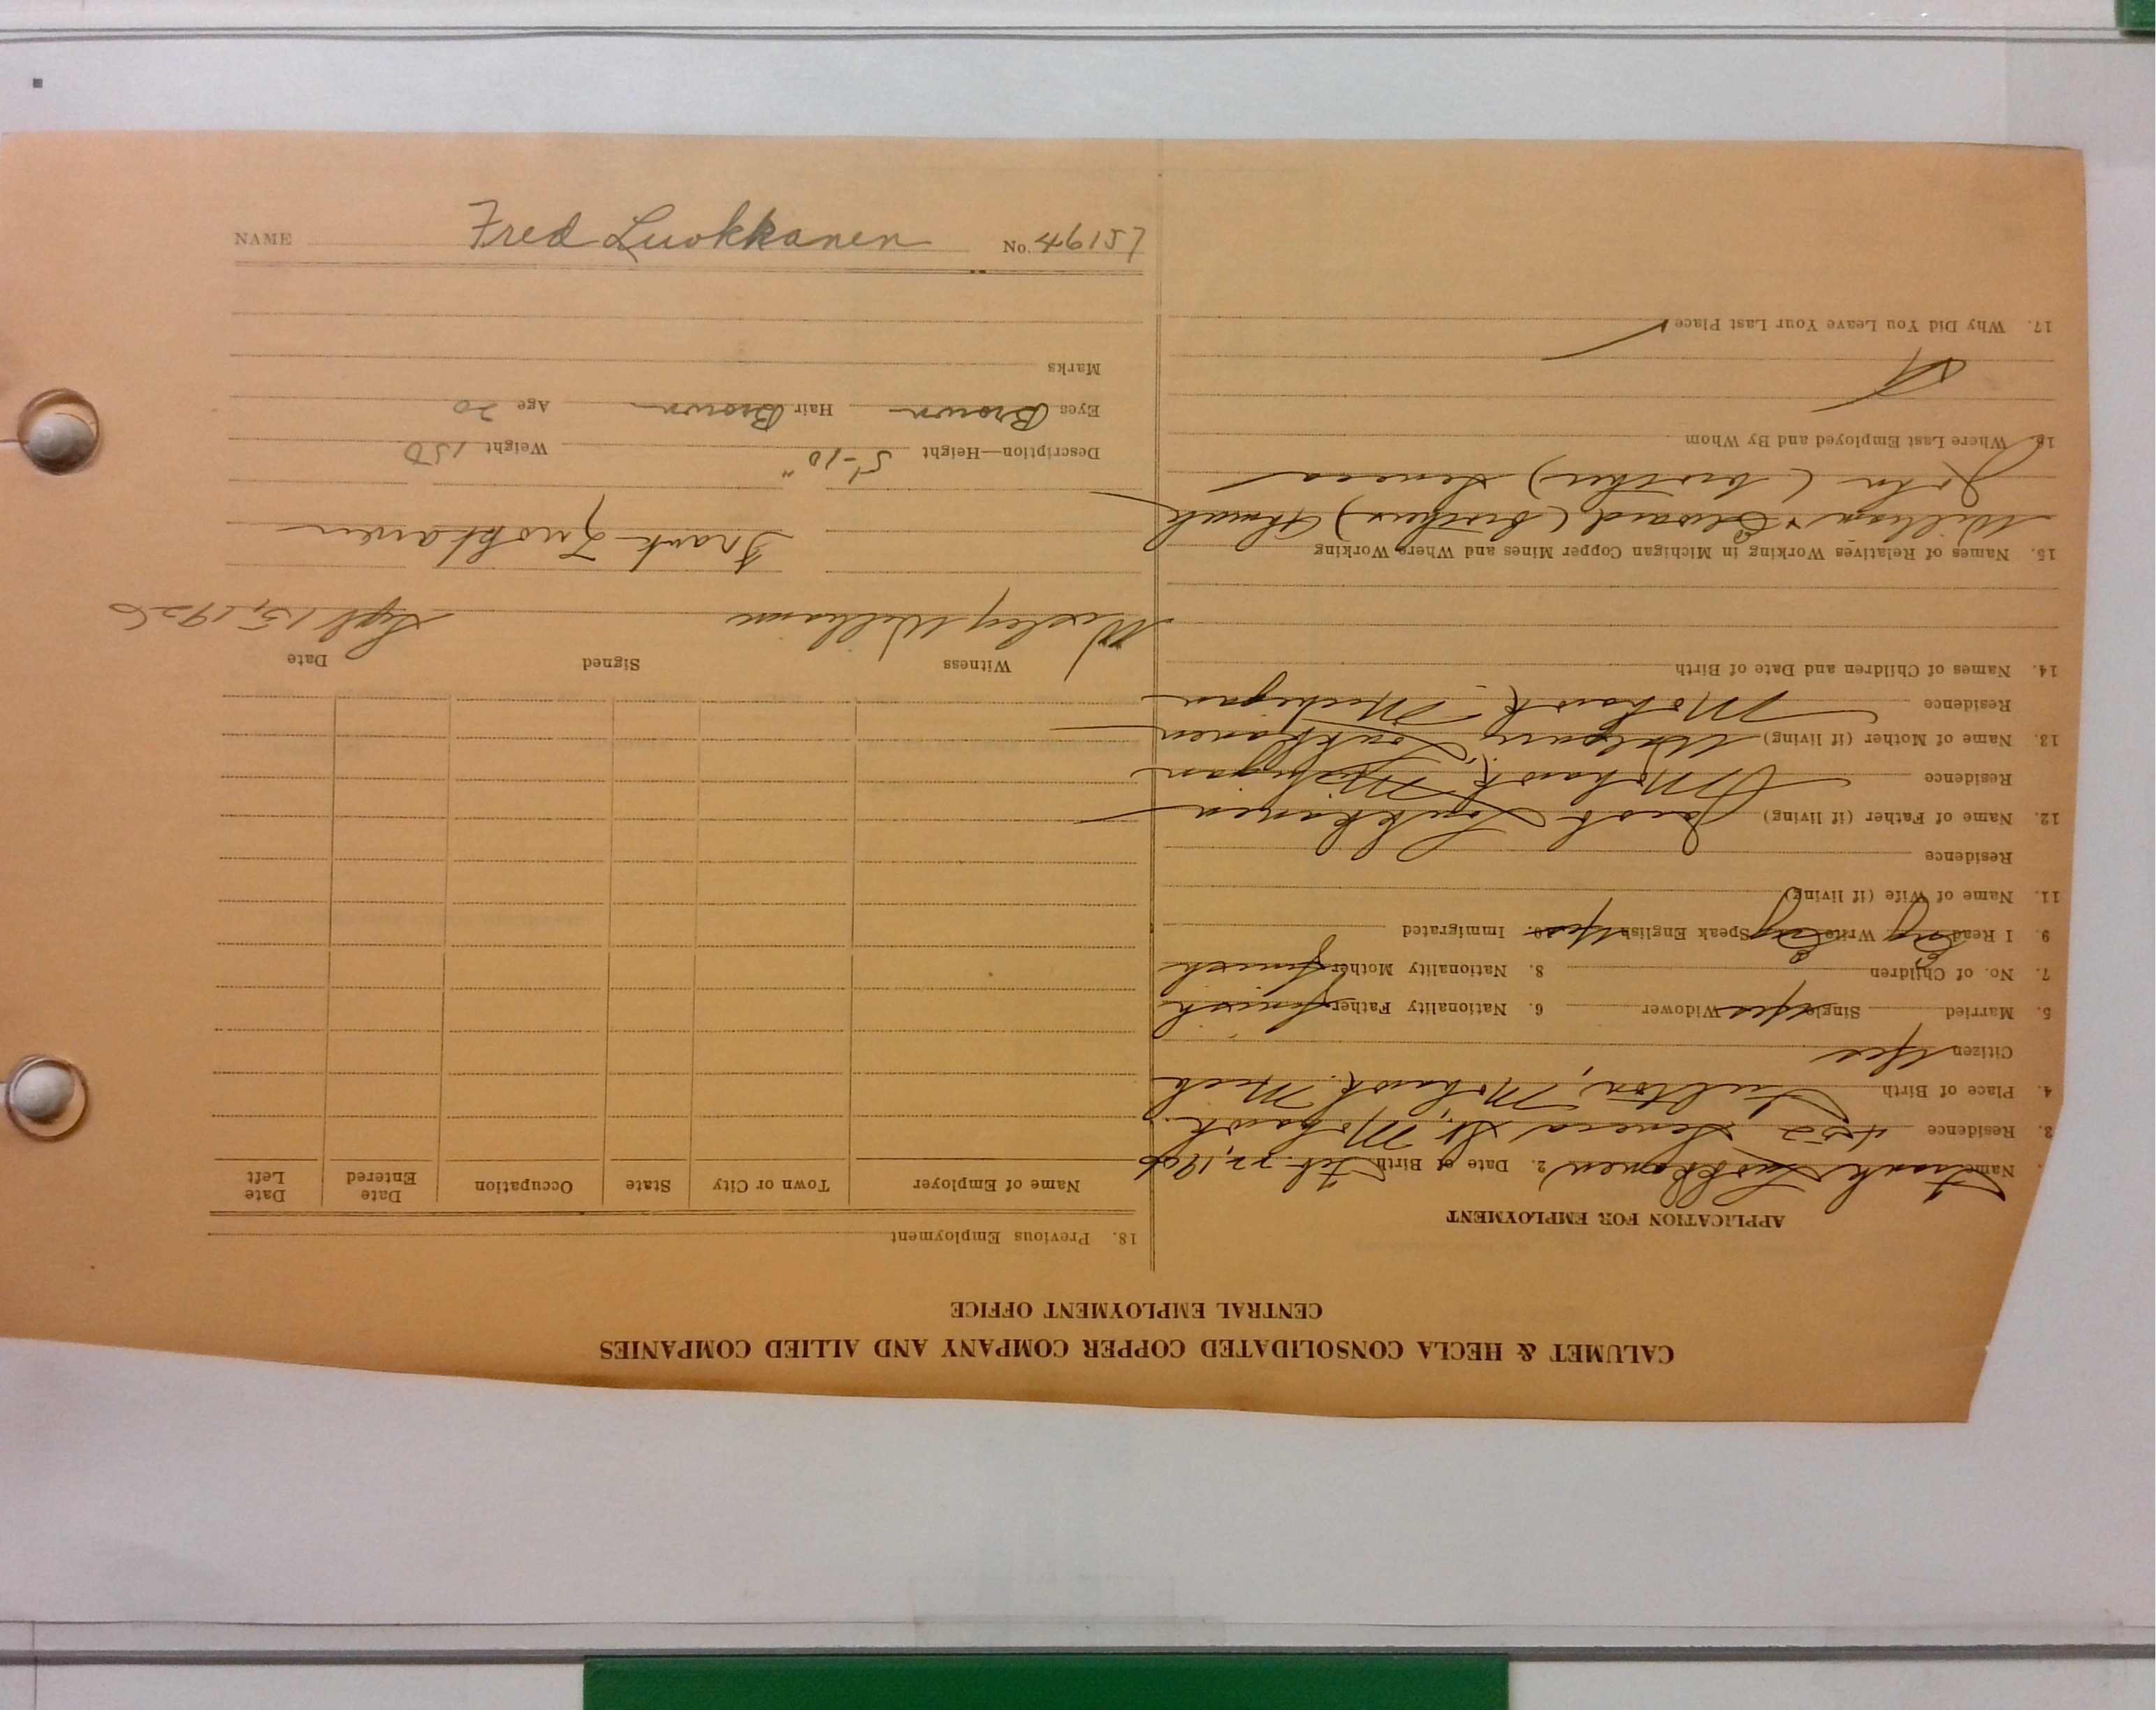 NAME Fred Luokkanen No. 46157
CALUMET & HECLA CONSOLIDATED COPPER COMPANY AND ALLIED COMPANIES
CENTRAL EMPLOYMENT OFFICE
APPLICATION FOR EMPLOYMENT
Name Frank Luokkanen 2. Date of Birth Feb. 22, 1906
3. Residence 452 Seneca St, Mohawk.
4. Place of Birth Fulton, Mohawk. Mich
Citizen Yes
5. Married Single Yes Widower 6. Nationality Father Finnish
7. No. of Children 8. Nationality Mother Finnish
9. I Read Eng Write Eng Speak English Yes 10. Immigrated
11. Name of Wife (if living)
Residence
12. Name of Father (if living) Jacob Loukkanen
Residence Mohawk, Michigan
13. Name of Mother (if living) Loukkanen
Residence Mohawk, Michigan
14. Names of Children and Date of Birth
15. Names of Relatives Working in Michigan Copper Mines and Where Working
William & Edward (brothers) Ahmeek
John (brother) Seneca
16. Where Last Employed and By Whom
17. Why Did You Leave Your Last Place
18. Previous Employment
Name of Employer Town or City State Occupation Date Entered Date Left
Witness Signed Date
Williams Sept 15, 1926
Frank Luokkanen
Description—Height 5'-10" Weight 150
Eyes Brown Hair Brown Age 20
Marks